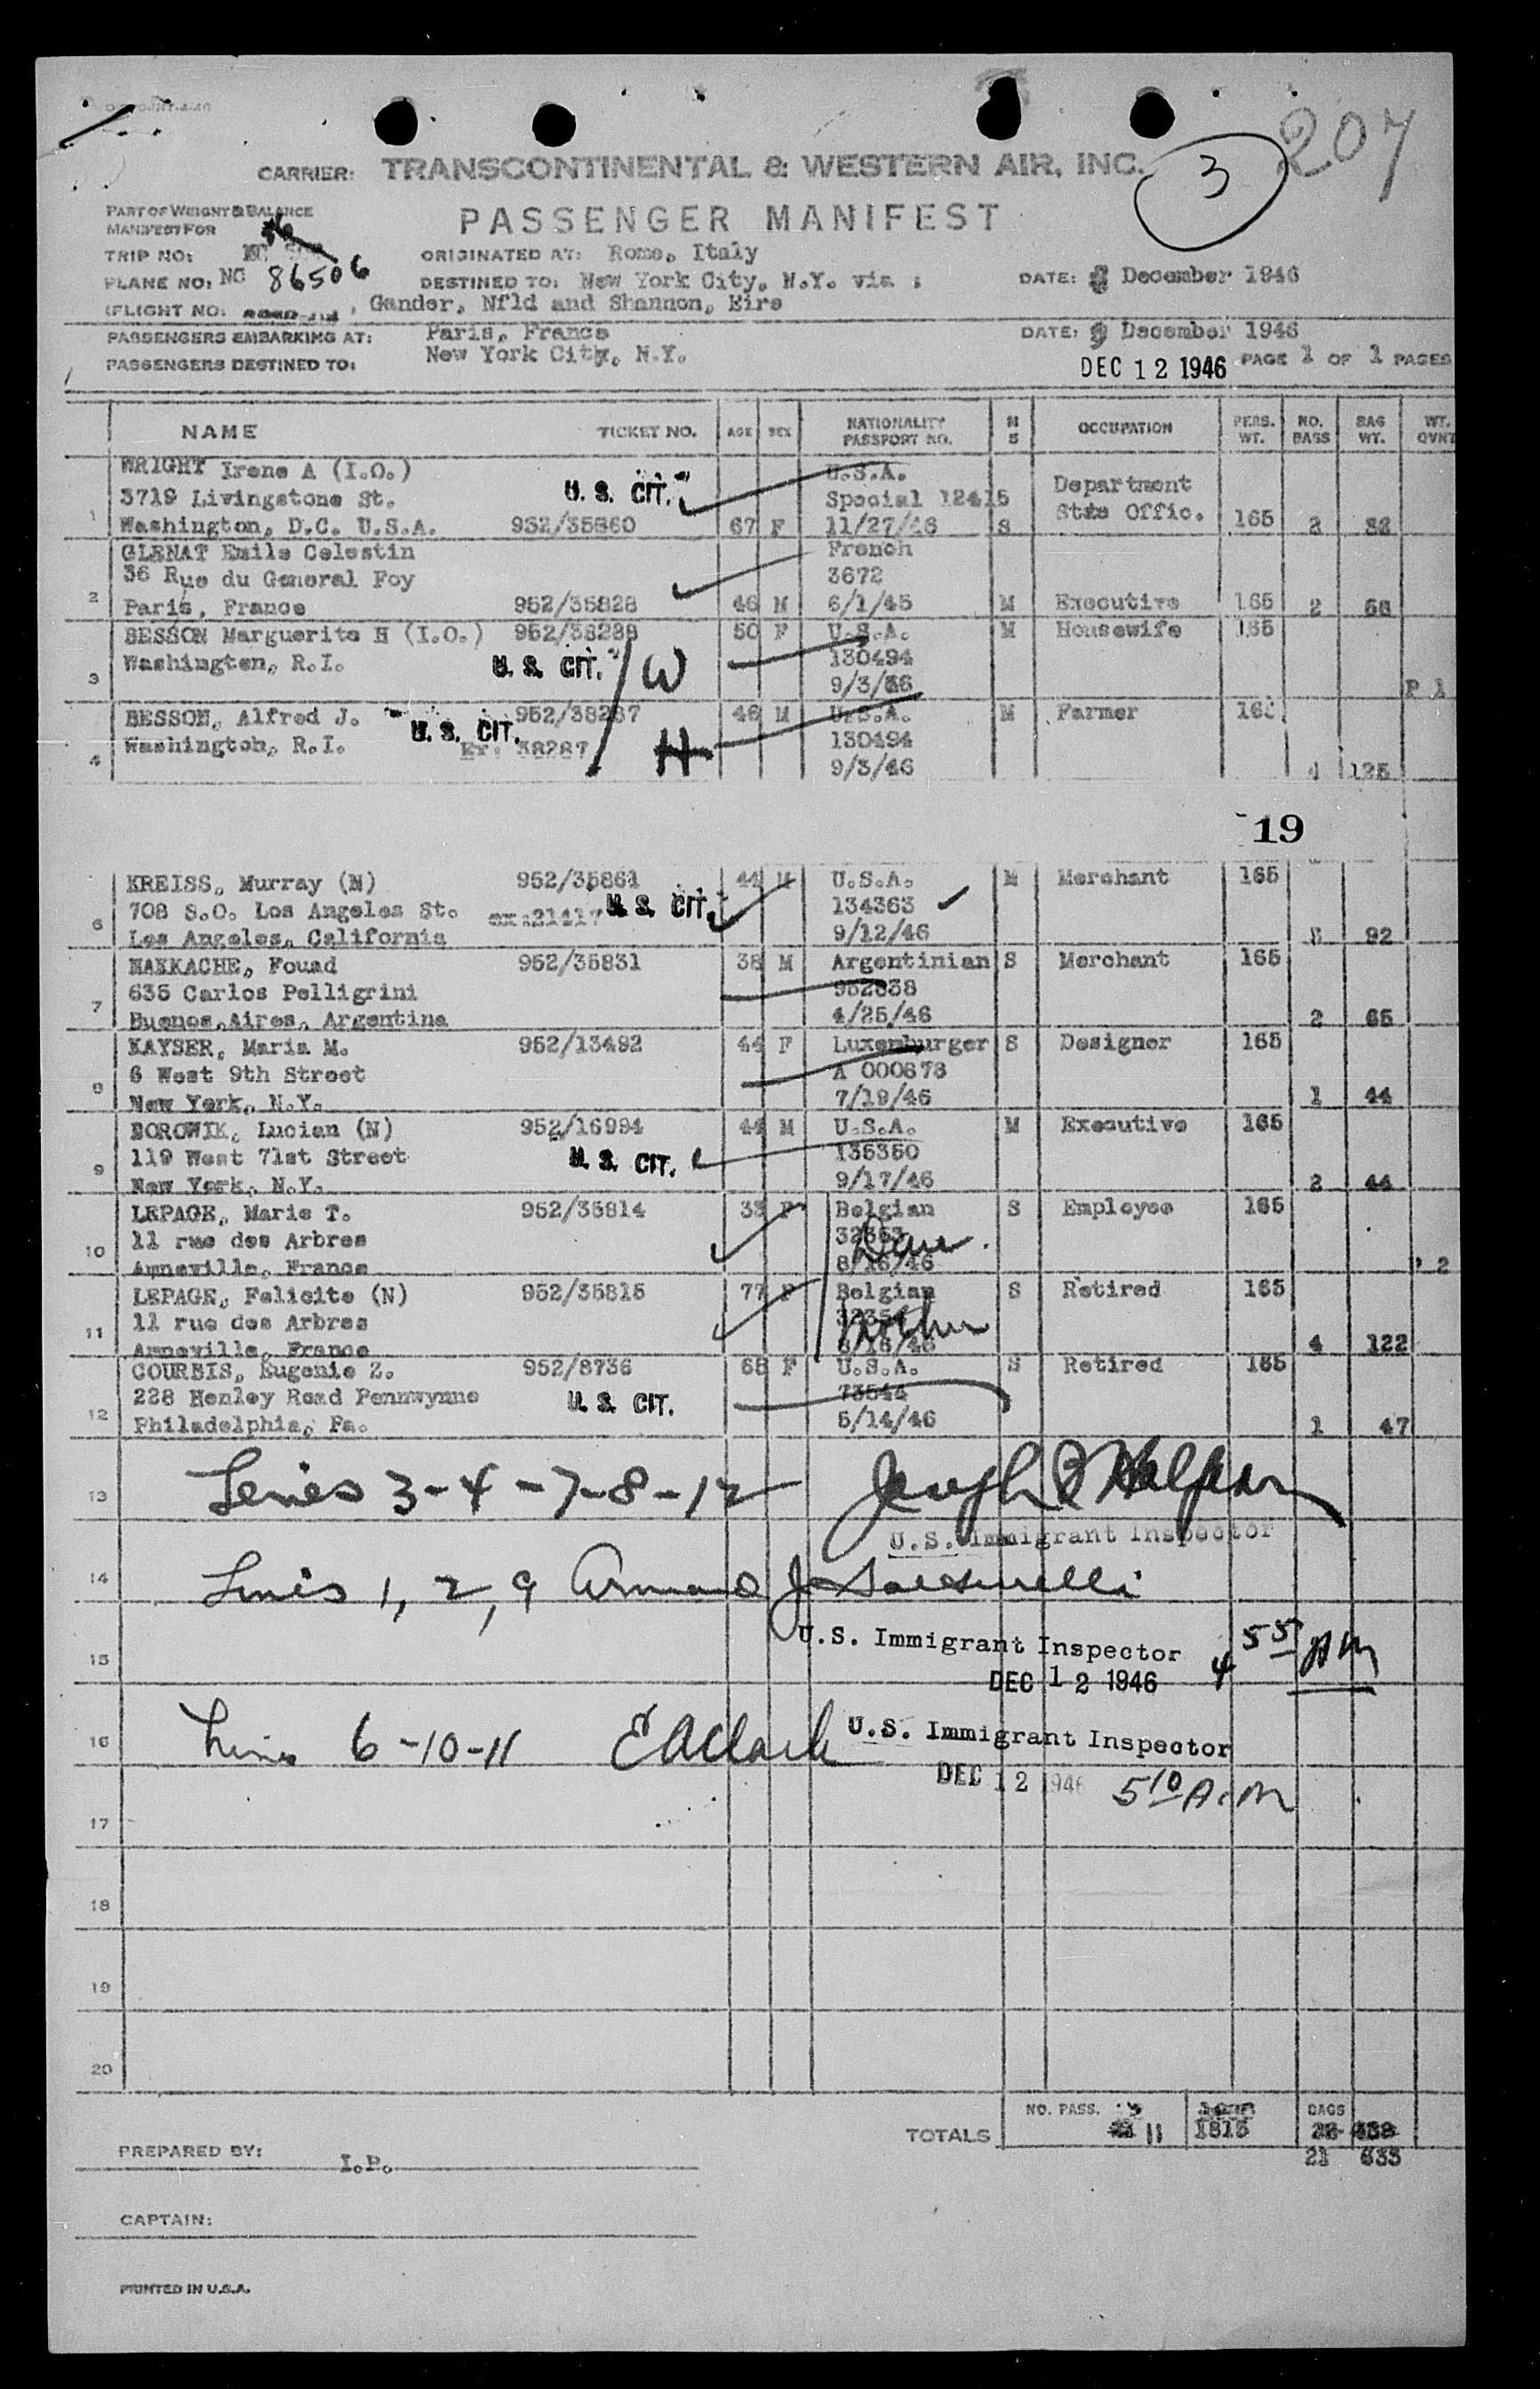 207
3
CARRIER: TRANSCONTINENTAL & WESTERN AIR, INC.
PASSENGER MANIFEST
PART OF WEIGHT & BALANCE
MANIFEST FOR
TRIP NO:
ORIGINATED AT: Rome, Italy
PLANE NO: NC 86506
DESTINED TO: New York City, N.Y. via :
DATE: December 1946
(FLIGHT NO:
Gander, Nfld and Shannon, Eire
PASSENGERS EMBARKING AT: Paris, France
DATE: 9 December 1946
PASSENGERS DESTINED TO: New York City, N.Y.
DEC 12 1946 PAGE 1 OF 1 PAGES
NAME TICKET NO. AGE SEX NATIONALITY PASSPORT NO. M S OCCUPATION PERS. WT. NO. BAGS BAG WT. WT. QVNT
WRIGHT Irene A (I.O.) U.S.A.
3719 Livingstone St. U. S. CIT. Special 12415 Department
1 Washington, D.C. U.S.A. 952/35860 67 F 11/27/46 S State Offic. 165 2
GLENAT Emile Celestin French
36 Rue du General Foy 3672
2 Paris, France 952/35828 46 M 6/1/45 M Executive 165 2
BESSON Marguerite H (I.O.) 952/38288 50 F U.S.A. M Housewife 165
Washington, R.I. U. S. CIT. W 130494
3 9/3/46 P 1
BESSON, Alfred J. 952/38287 46 M U.S.A. M Farmer
Washington, R.I. U. S. CIT. Ex: 38287 H 130494
4 9/3/46 4 125
19
KREISS, Murray (N) 952/35861 44 M U.S.A. M Merchant 165
708 S.O. Los Angeles St. ex:21417 U. S. CIT. 134363
6 Los Angeles, California 9/12/46 92
NAKKACHE, Fouad 952/35831 38 M Argentinian S Merchant 165
635 Carlos Pelligrini 952838
7 Buenos Aires, Argentina 4/25/46 2 65
KAYSER, Maria M. 952/13492 44 F Luxemburger S Designer 165
6 West 9th Street A 000678
8 New York, N.Y. 7/19/46 1 44
BOROWIK, Lucian (N) 952/16994 44 M U.S.A. M Executive 165
119 West 71st Street U. S. CIT. 135350
9 New York, N.Y. 9/17/46 2 44
LEPAGE, Marie T. 952/35814 33 F Belgian S Employee 165
11 rue des Arbres
10 Amneville, France 8/16/46 2
LEPAGE, Felicite (N) 952/35815 77 F Belgian S Retired 165
11 rue des Arbres Mother
11 Amneville, France 8/16/46 4 122
COURBIS, Eugenie Z. 952/8736 68 F U.S.A. S Retired 165
228 Henley Road Pennwynne U. S. CIT. 73544
12 Philadelphia, Pa. 5/14/46 1 47
13 Lines 3-4-7-8-12
U.S. Immigrant Inspector
14 Lines 1, 2, 9
U.S. Immigrant Inspector 4 55 AM
15
DEC 12 1946
16 Lines 6-10-11 E A Clark U.S. Immigrant Inspector
DEC 12 1946 5 10 A.M
17
18
19
20
NO. PASS. BAGS
TOTALS 11 1815
PREPARED BY: I.P. 21 633
CAPTAIN:
PRINTED IN U.S.A.